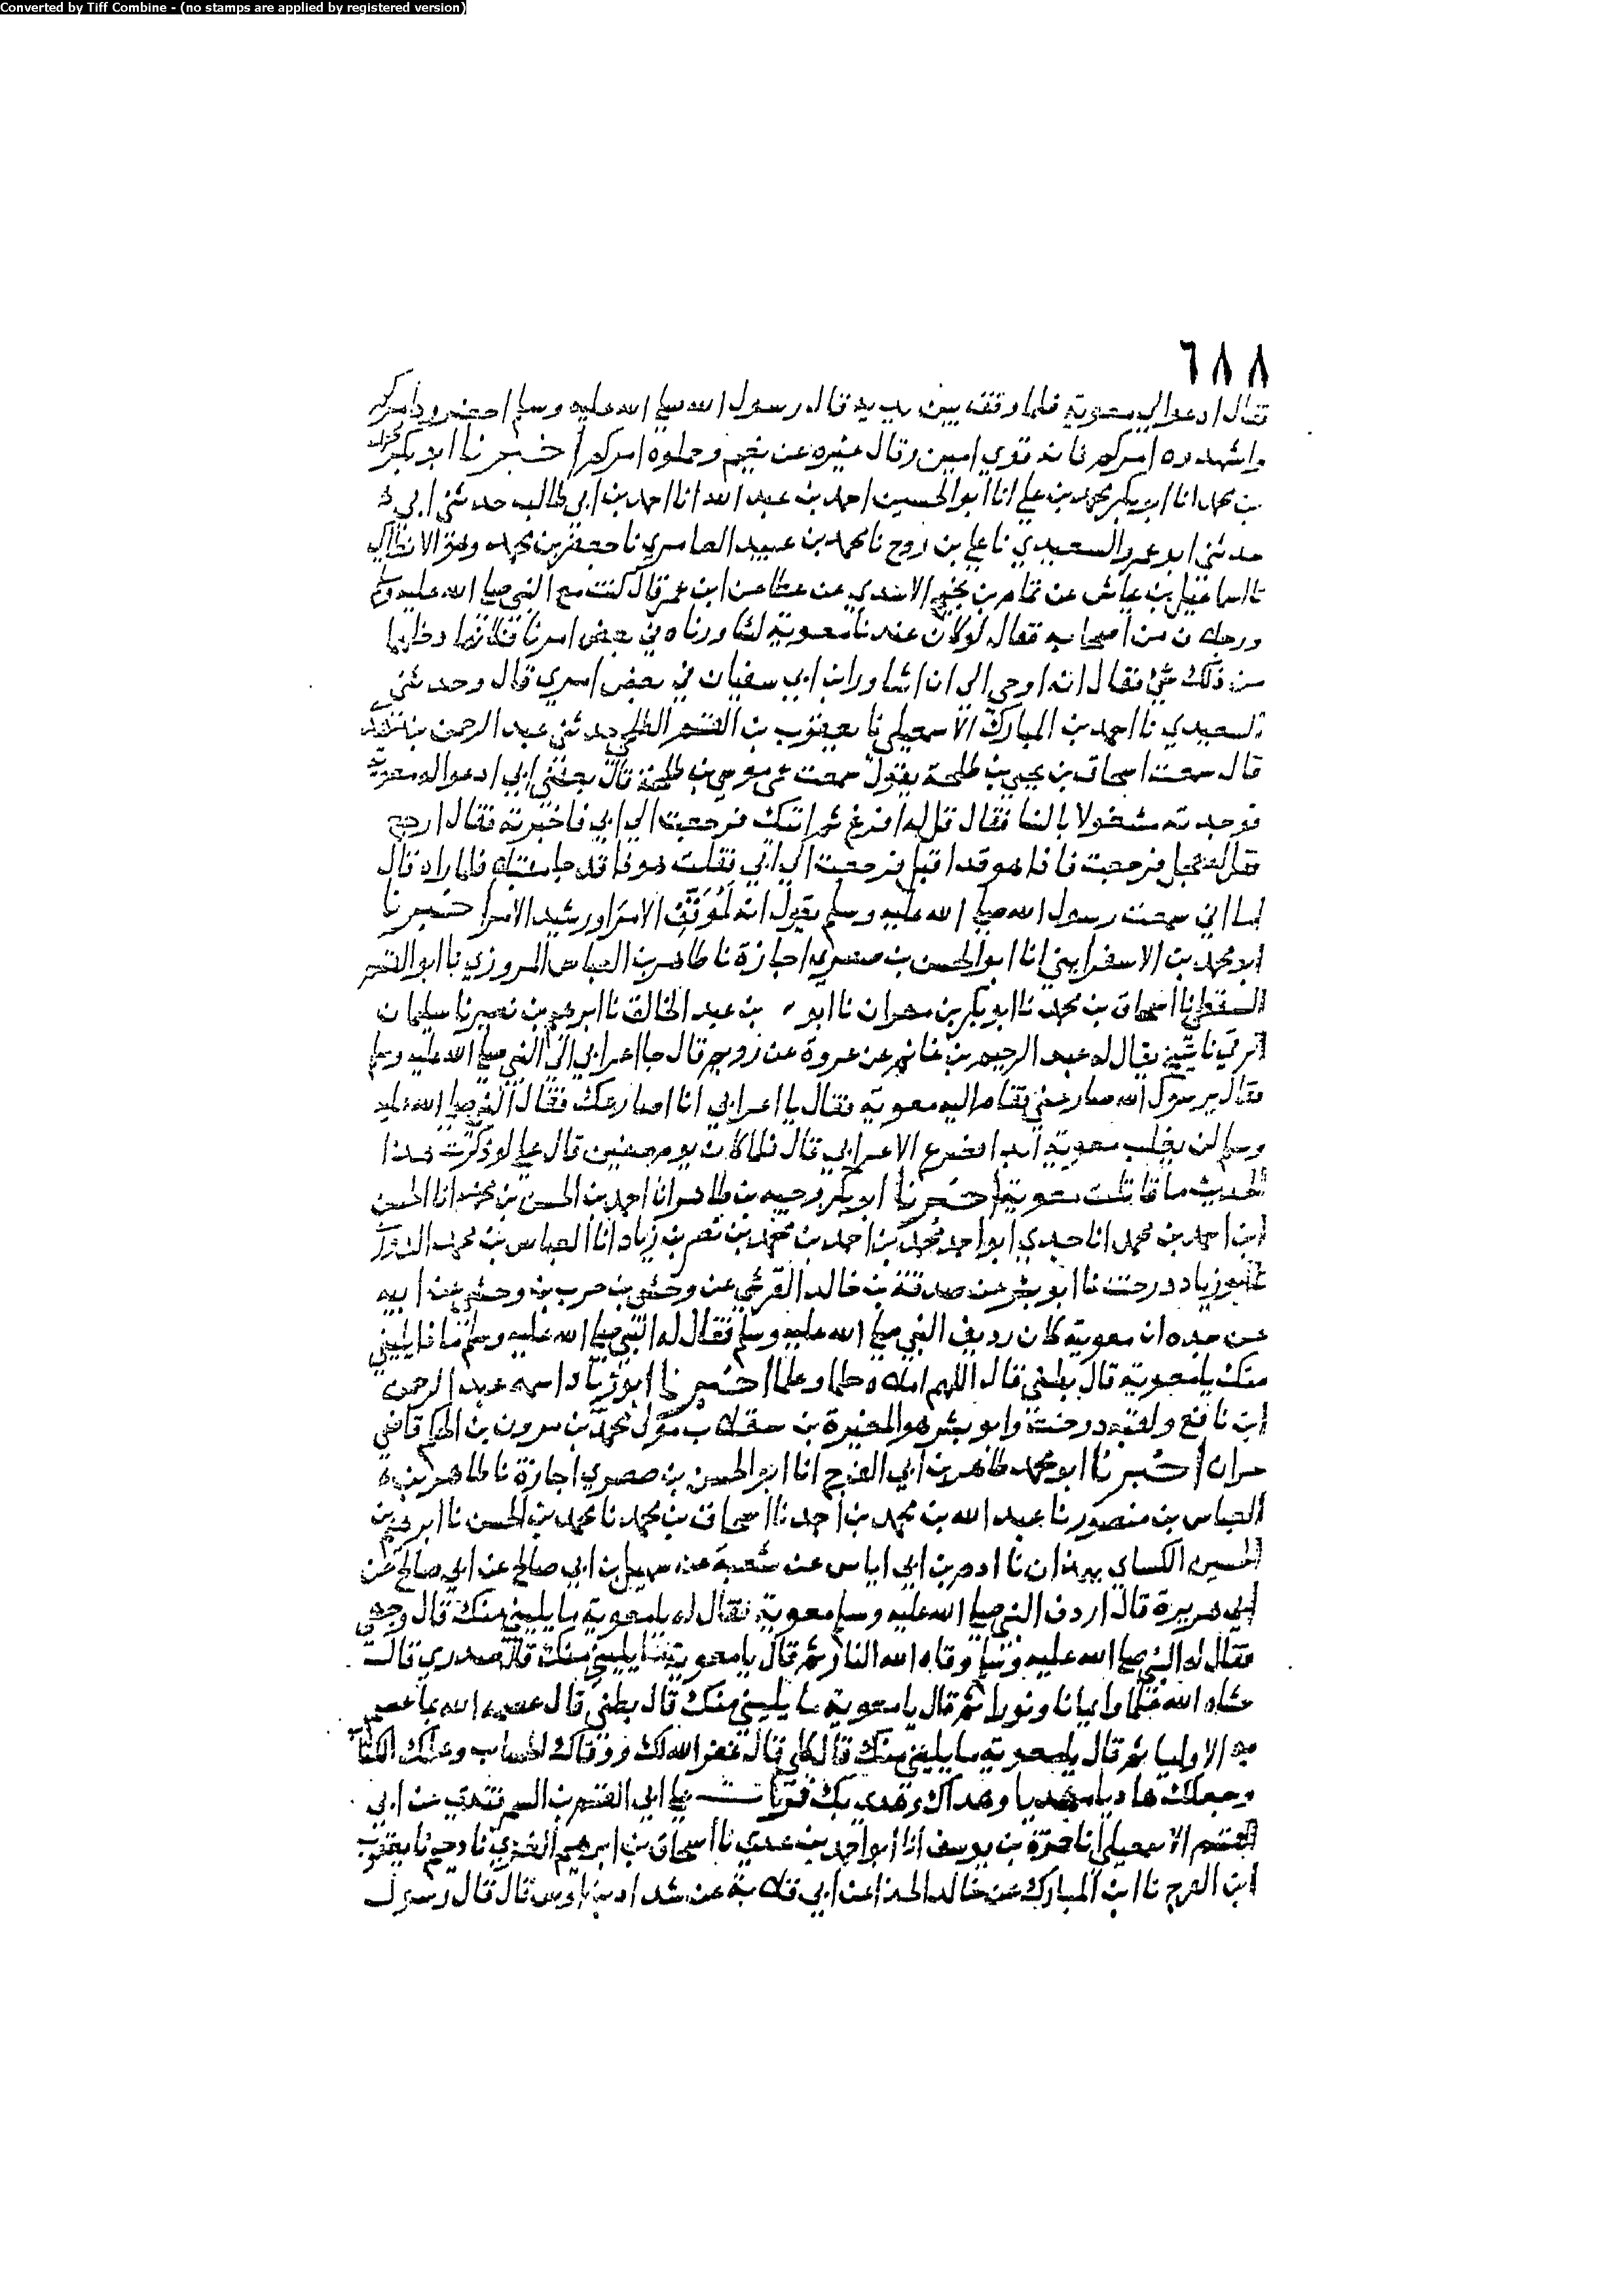 Converted by Tiff Combine - (no stamps are applied by registered version)
٦٨٨
فقال ادعوا لي معوية فلما وقف بين يديه قال رسول الله صلى الله عليه وسلم احضروه امركم
واشهدوه امركم فانه قوي امين وقال غيره عن نعيم وحملوه امركم اخبرنا ابو بكر
بن محمد انا ابو بكر محمد بن علي انا ابو الحسين احمد بن عبد الله انا احمد بن ابي طالب حدثني ابي
حدثني ابو عمرو السعيدي نا علي بن روح نا محمد بن عبيد العامري نا جعفر بن محمد وهو الانطاكي
نا اسماعيل بن عياش عن تمام بن نجيح الاسدي عن عطا عن ابن عمر قال كنت مع النبي صلى الله عليه وسلم
ورجلان من اصحابه فقال لو كان عندنا معوية لشاورناه في بعض امرنا فكانهما دخلهما
من ذلك شي فقال انه اوحي الي ان اشاور ابن ابي سفيان في بعض امري قال وحدثني
السعيدي نا احمد بن المبارك الاسمعيلي نا يعقوب بن القسم الطلحي حدثني عبد الرحمن بن
قال سمعت اسحاق بن يحيى بن طلحة يقول سمعت عمي موسى بن طلحة قال بعثني ابي ادعوا له معوية
فوجدته مشغولا بالنسا فقال قل له افرغ ثم اتيك فرجعت الي ابي فاخبرته فقال ارجع
فقل له عجل فرجعت فاذا هو قد اقبل فرجعت الي ابي فقلت هوذا قد جا مقبلا فلما راه قال
اما اني سمعت رسول الله صلى الله عليه وسلم يقول انه لموفق الامر او رشيد الامر اخبرنا
ابو محمد بن الاسفرايني انا ابو الحسن بن صصري اجازة نا طاهر بن العباس المروزي نا ابو القسم
السقطي نا اسحاق بن محمد نا ابو بكر بن مهران نا ابو بن عبد الخالق نا ابرهيم بن نصير نا سليمان
الرقي نا شيخ يقال له عبد الرحيم بن غانم عن عروة عن رويم قال جا اعرابي الى النبي صلى الله عليه وسلم
فقال يرسول الله صارعني فقام اليه معوية فقال يا اعرابي انا اصارعك فقال النبي صلى الله عليه
وسلم لن يغلب معوية ابدا فصرع الاعرابي قال فلما كان يوم صفين قال علي لو ذكرت هذا
الحديث ما قاتلت معوية اخبرنا ابو بكر وجيه بن طاهر انا احمد بن الحسن بن محمد انا الحسن
ابن احمد بن محمد انا جدي ابو احمد محمد بن احمد بن محمد بن نصر بن زياد انا العباس بن محمد الدوري
نا ابو زياد درخت نا ابو بشر عن صدقة بن خالد القرشي عن وحشي بن حرب بن وحشي عن ابيه
عن جده ان معوية كان رديف النبي صلى الله عليه وسلم فقال له النبي صلى الله عليه وسلم ما ذا يليني
منك يا معوية قال بطني قال اللهم املاه حلما وعلما اخبرنا ابو زياد اسمه عبد الرحمن
ابن نافع ولقبه درخت وابو بشر هو المغيرة بن سقلاب مولى محمد بن مروان بن الحكم قاضي
حران اخبرنا ابو محمد طاهر بن ابي الفرج انا ابو الحسن بن صصري اجازة نا طاهر بن
العباس بن منصور نا عبد الله بن محمد بن احمد نا اسحاق بن محمد نا محمد بن الحسن نا ابرهيم بن
الحسين الكساي بهمذان نا ادم بن ابي اياس عن شعبة عن سهيل بن ابي صالح عن ابي صالح عن
ابي هريرة قال اردف النبي صلى الله عليه وسلم معوية فقال له يا معوية ما يليني منك قال وجهي
فقال له النبي صلى الله عليه وسلم وقاه الله النار ثم قال يا معوية ما يليني منك قال صدري قال
حشاه الله علما وايمانا ونورا ثم قال يا معوية ما يليني منك قال بطني قال عصمه الله بما عصم
به الاوليا ثم قال يا معوية ما يليني منك قال كلي قال غفر الله لك ووقاك الحساب وعلمك الكتاب
وجعلك هاديا مهديا وهداك وهدى بك قرات على ابي القسم بن السمرقندي عن ابي
القسم الاسمعيلي انا حمزة بن يوسف انا ابو احمد بن عدي نا اسحاق بن ابرهيم الغزي نا دحيم نا يعقوب
ابن الفرج نا ابن المبارك عن خالد الحذا عن ابي قلابة عن شداد بن اوس قال قال رسول